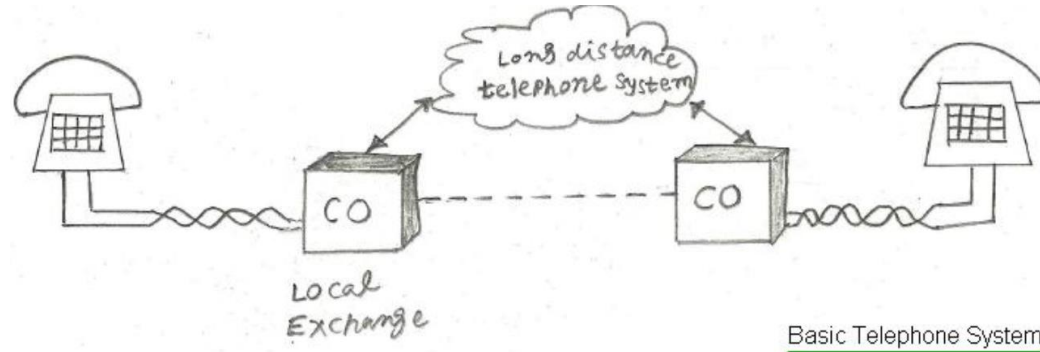 Long distance
telephone system
CO
CO
Local
Exchange
Basic Telephone System